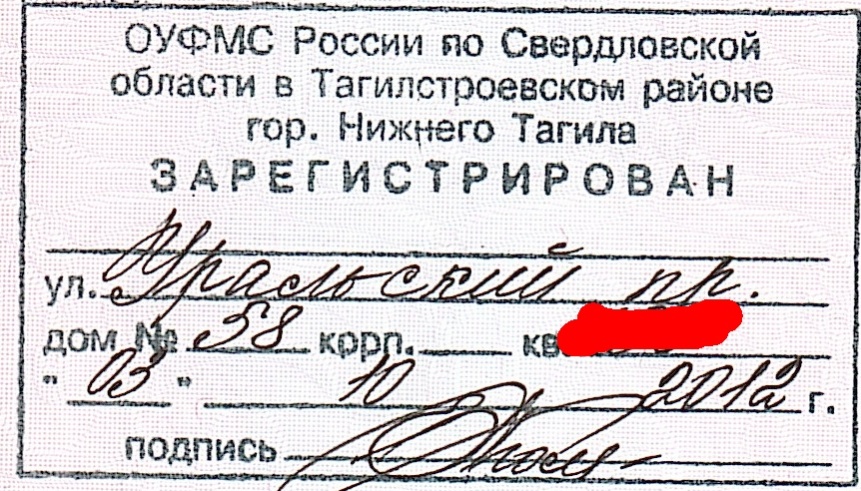 ОУФМС России по Свердловской
области в Тагилстроевском районе
гор. Нижнего Тагила
ЗАРЕГИСТРИРОВАН
ул. Уральский пр.
дом № 58 корп. кв.
" 03 " 10 2012 г.
подпись